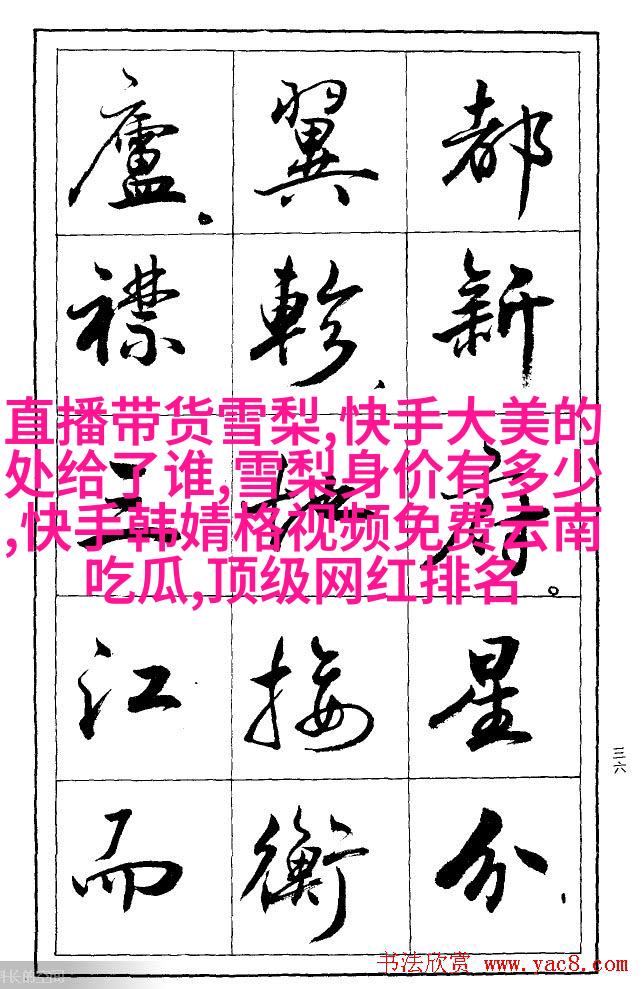 都新府。星分、
翼軫、地接衡
廬。襟三江而
直播带货雪梨,快手大美的
处给了谁,雪梨身价有多少
,快手韩婧格视频免费云南
吃瓜,顶级网红排名
三六
长的空间
书法欣赏 www.yac8.com